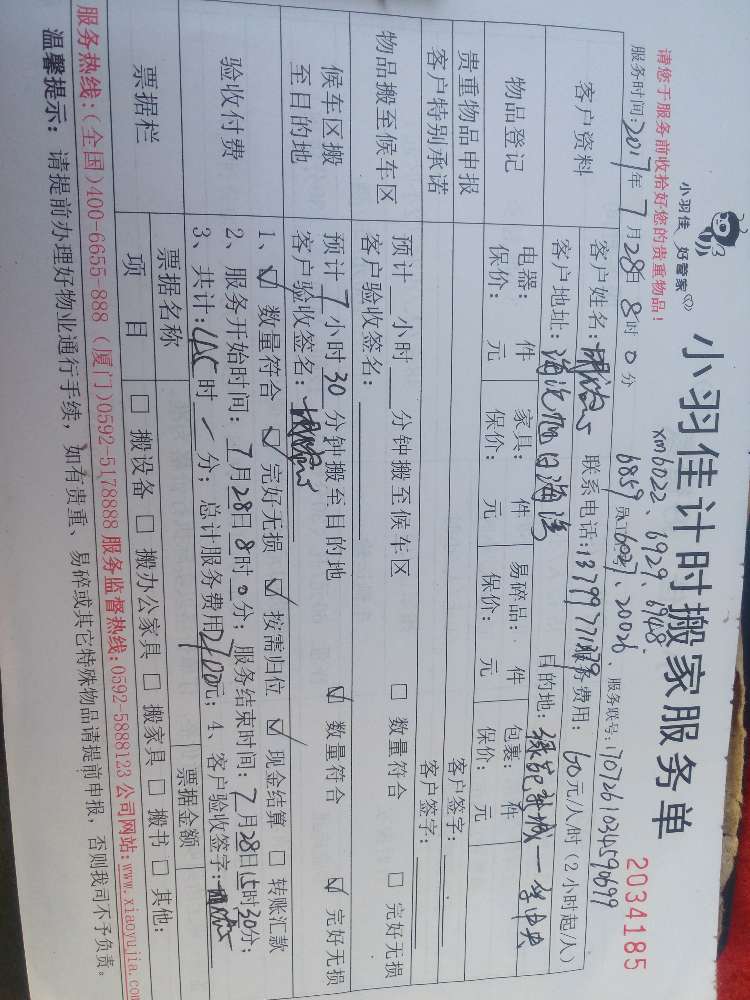 小羽佳 好管家
小羽佳计时搬家服务单
2034185
请您于服务前收拾好您的贵重物品!
xm6022、6929、6948、
6859 6027、20026
服务时间:2017年7月28日8时0分
服务联号:1707261034590699
客户资料
客户姓名: 联系电话:13799771379 服务费用: 60元/人/时(2小时起/人)
客户地址: 目的地:
物品登记
电器: 件 家具: 件 易碎品: 件 包裹: 件
保价: 元 保价: 元 保价: 元 保价: 元
贵重物品申报
客户签字:
客户特别承诺
客户签字:
物品搬至候车区
预计 小时 分钟搬至候车区 □ 数量符合 □ 完好无损
客户验收签名:
候车区搬至目的地
预计7小时30分钟搬至目的地 ☑ 数量符合 ☑ 完好无损
客户验收签名:
验收付费
1、☑ 数量符合 ☑ 完好无损 ☑ 按需归位 ☑ 现金结算 □ 转账汇款
2、服务开始时间:7月28日8时0分; 服务结束时间:7月28日15时30分;
3、共计: 时 分; 总计服务费用2100元; 4、客户验收签字:
票据栏
票据名称 票据金额
项 目 □ 搬设备 □ 搬办公家具 □ 搬家具 □ 搬书 □ 其他:
服务热线:(全国)400-6655-888 (厦门)0592-5178888 服务监督热线:0592-5888123 公司网站:www.xiaoyujia.com
温馨提示: 请提前办理好物业通行手续,如有贵重、易碎或其它特殊物品请提前申报,否则我司不予负责。